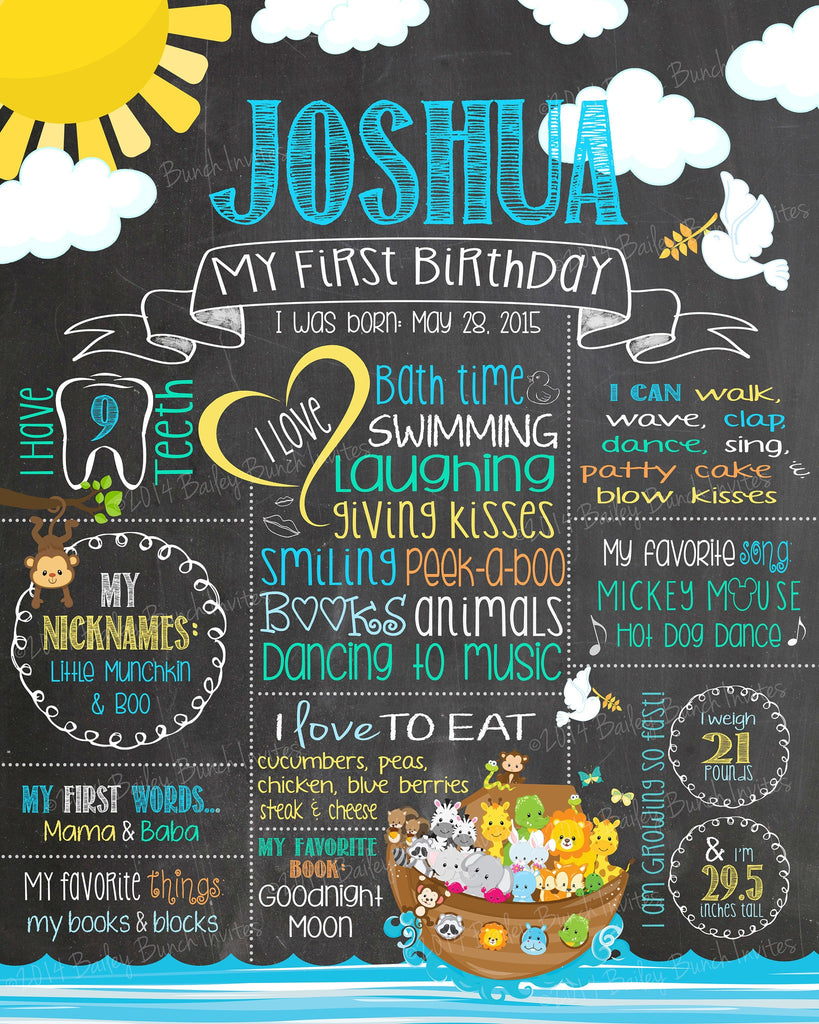 JOSHUA
MY FIRST BIRTHDAY
I WAS BORN: MAY 28, 2015
I Have
9
Teeth
I LOVE
Bath time
SWIMMING
Laughing
giving kisses
smiling peek-a-boo
BOOKS animals
Dancing to music
I CAN walk,
wave, clap,
dance, sing,
patty cake &
blow kisses
MY NICKNAMES:
Little Munchkin
& Boo
My favorite song:
MICKEY MOUSE
Hot Dog Dance
MY FIRST WORDS...
Mama & Baba
My favorite things:
my books & blocks
I love TO EAT
cucumbers, peas,
chicken, blue berries
steak & cheese
MY FAVORITE
BOOK:
Goodnight
Moon
I AM GROWING SO FAST!
I weigh
21
POUNDS
& I'm
29.5
inches tall
©2014 Bailey Bunch Invites